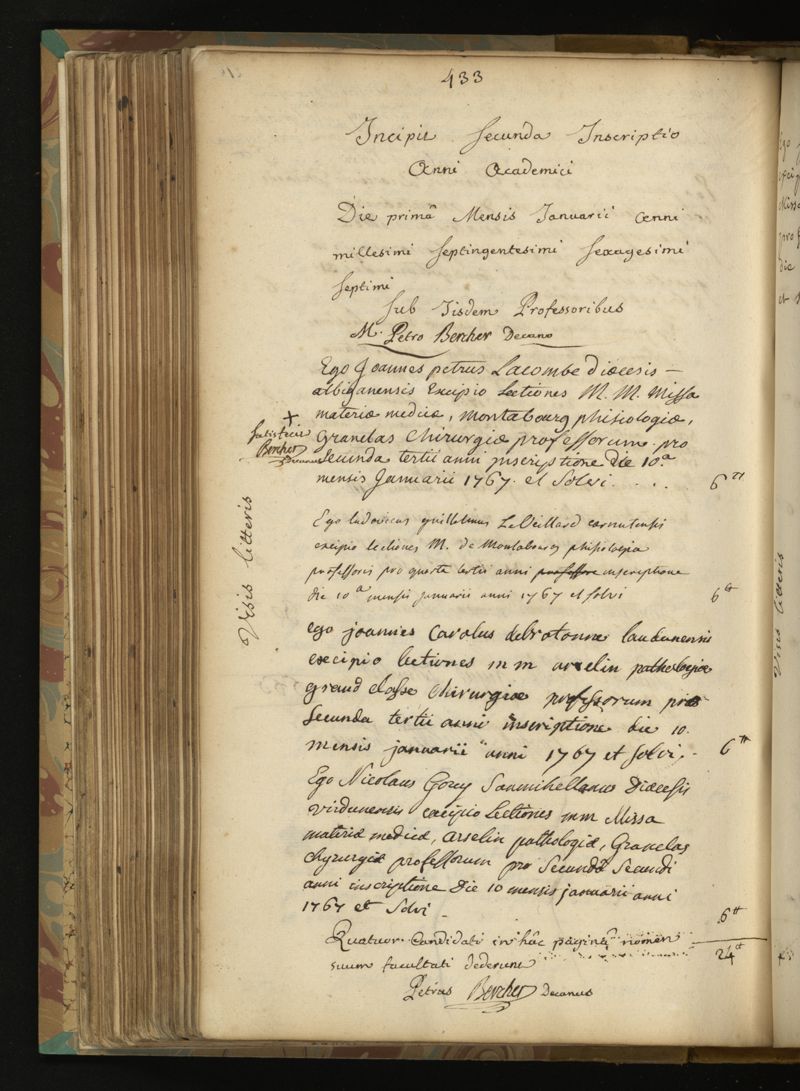 433
Incipit Secunda Inscriptio
Anni Academici
Die primâ Mensis Januarii anni
millesimi septingentesimi sexagesimi
septimi
sub Iisdem Professoribus
M. Petro Bercher Decano
Ego Joannes petrus Lacombe diœcesis —
albiganensis Excipio Lectiones M. M. Missa
materiæ medicæ, Montabourg phisiologiæ,
Granclas chirurgiæ professorum pro
secunda tertii anni inscriptione die 10.a
mensis Januarii 1767. et Solvi . . . . 6 tt
+
satisfecit
Bercher
Decanus
Visis litteris
Ego ludovicus guillelmus LeVeillard carnutensis
excipio lectiones M. de Montabourg phisiologiæ
professoris pro quarta tertii anni professore inscriptione
die 10 a mensis januarii anni 1767 et solvi 6 tt
ego joannes Carolus debrotonne laudunensis
excipio lectiones m m arcelin pathologiæ
grand classe chirurgiæ professorum pro
secunda tertii anni inscriptione die 10.
mensis januarii anni 1767 et solvi. - 6 tt
Ego Nicolaus Gouy Sanmihellanus Diœcesis
virdunensis excipio Lectiones m m Missa
materiæ medicæ, arselin pathologiæ, Granclas
chyrurgiæ professorum pro Secunda Secundi
anni inscriptione Die 10 mensis januarii anni
1767 et Solvi - 6 tt
Quatuor Candidati in hâc paginâ nomen
suum facultati dederunt 24 tt
Petrus Bercher Decanus
Visis litteris